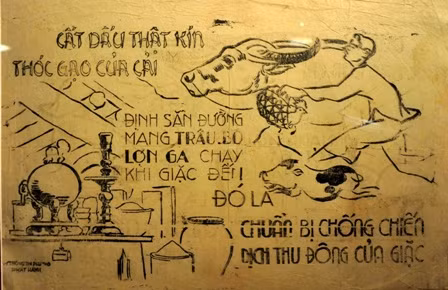 CẤT DẤU THẬT KÍN
THÓC GẠO CỦA CẢI
ĐỊNH SẴN ĐƯỜNG
MANG TRÂU.BÒ
LỢN GÀ CHẠY
KHI GIẶC ĐẾN!
ĐÓ LÀ
CHUẨN BỊ CHỐNG CHIẾN
DỊCH THU ĐÔNG CỦA GIẶC